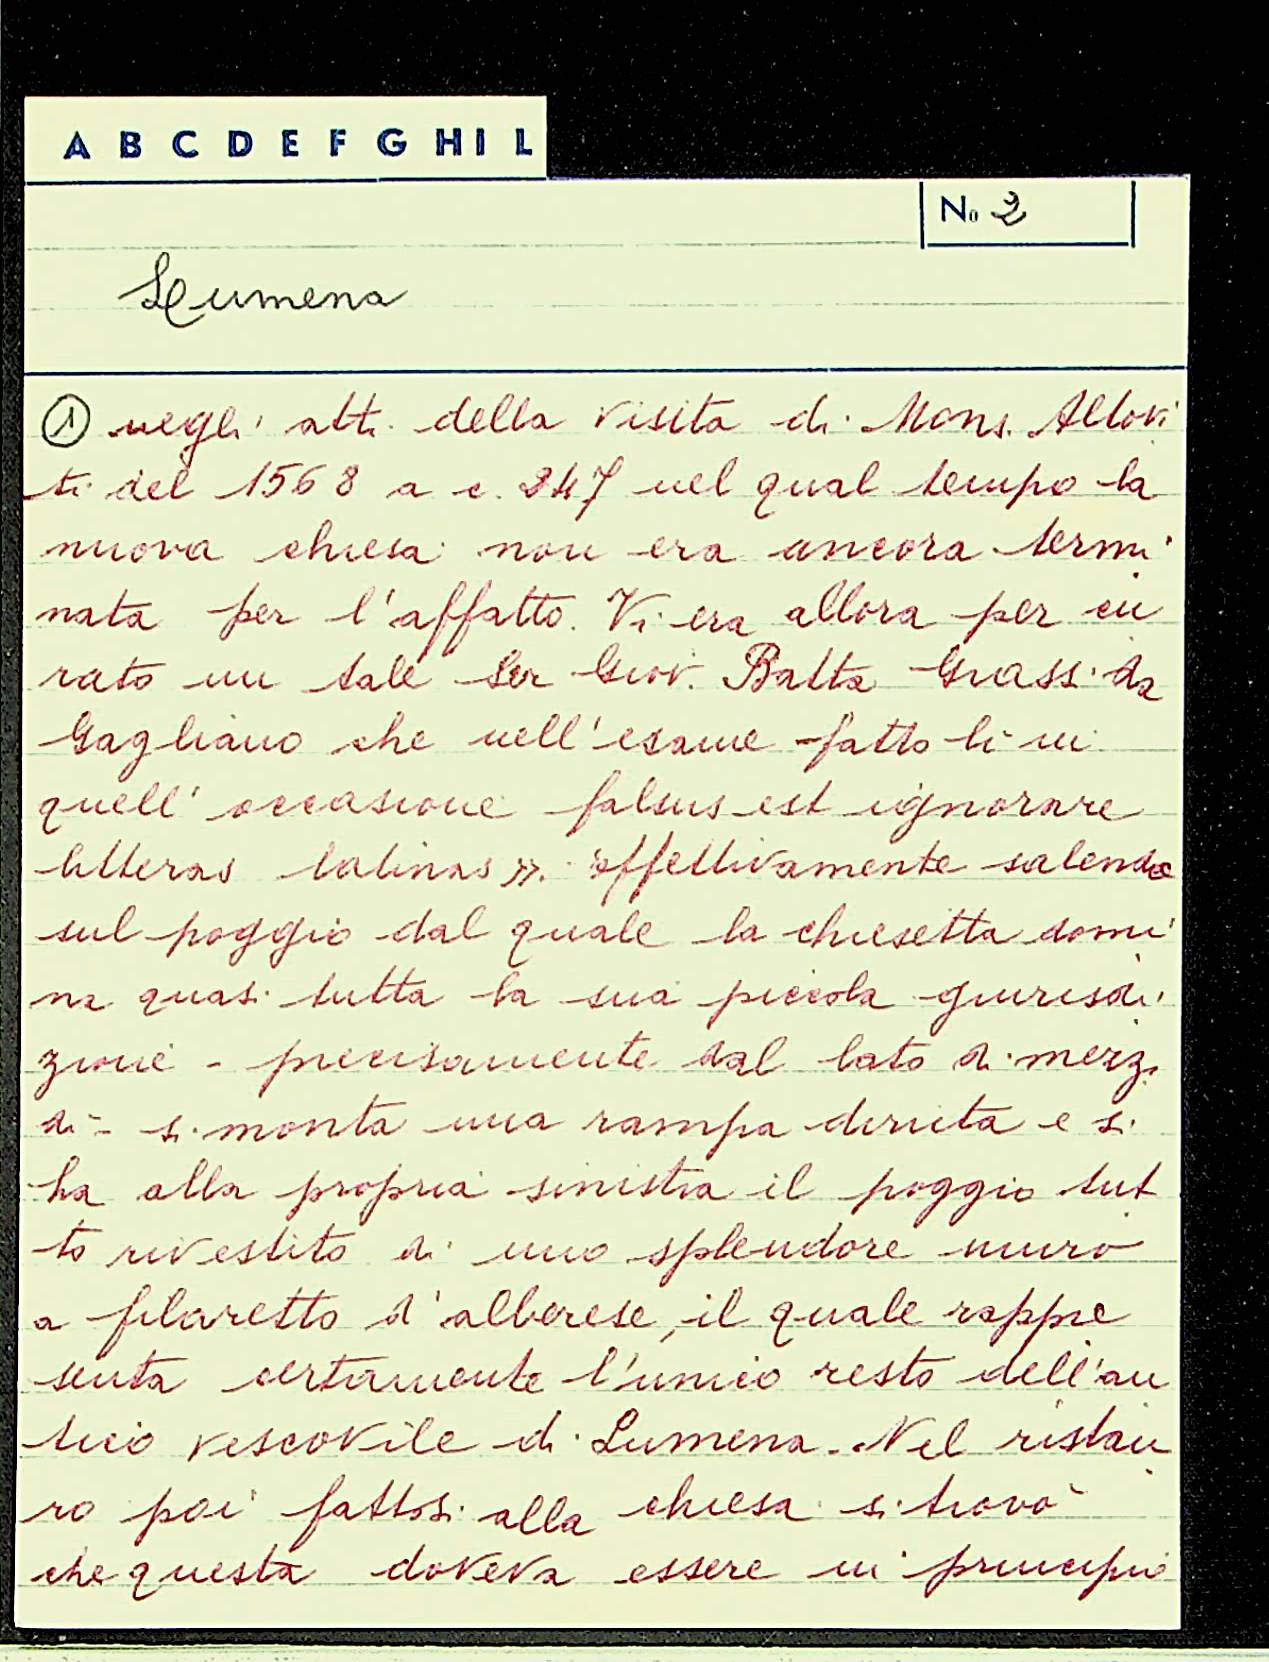 A B C D E F G H I L
No 2
Lumena
① negli atti della visita di Mons. Altovi
ti del 1568 a c. 247 nel qual tempo la
nuova chiesa non era ancora termi
nata per l'affatto. Vi era allora per cu
rato un tale Ser Giov. Batta Grassi da
Gagliano che nell'esame fatto lì in
quell'occasione falsus est ignorare
litteras latinas». Effettivamente salendo
sul poggio dal quale la chiesetta domi
na quasi tutta la sua piccola giurisdi
zione - precisamente dal lato di mezzo
dì - si monta una rampa diruta e si
ha alla propria sinistra il poggio tut
to rivestito di uno splendore muro
a filaretto d'alberese, il quale rappre
senta certamente l'unico resto dell'an
tico vescovile di Lumena. Nel ristau
ro poi fattosi alla chiesa si trovò
che questa doveva essere in principio